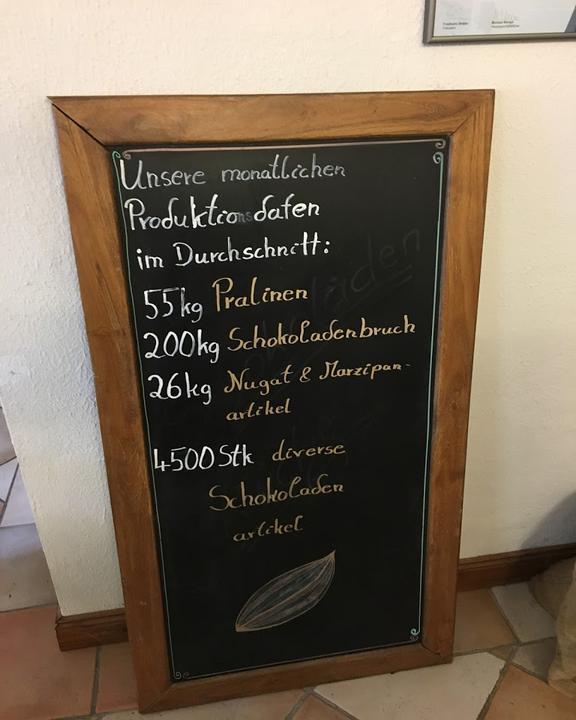 Unsere monatlichen
Produktionsdaten
im Durchschnitt:
55kg Pralinen
200kg Schokoladenbruch
26kg Nugat & Marzipan-
artikel
4500 Stk diverse
Schokoladen
artikel